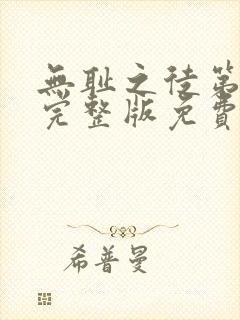 無耻之徒第
完整版免費
希普曼